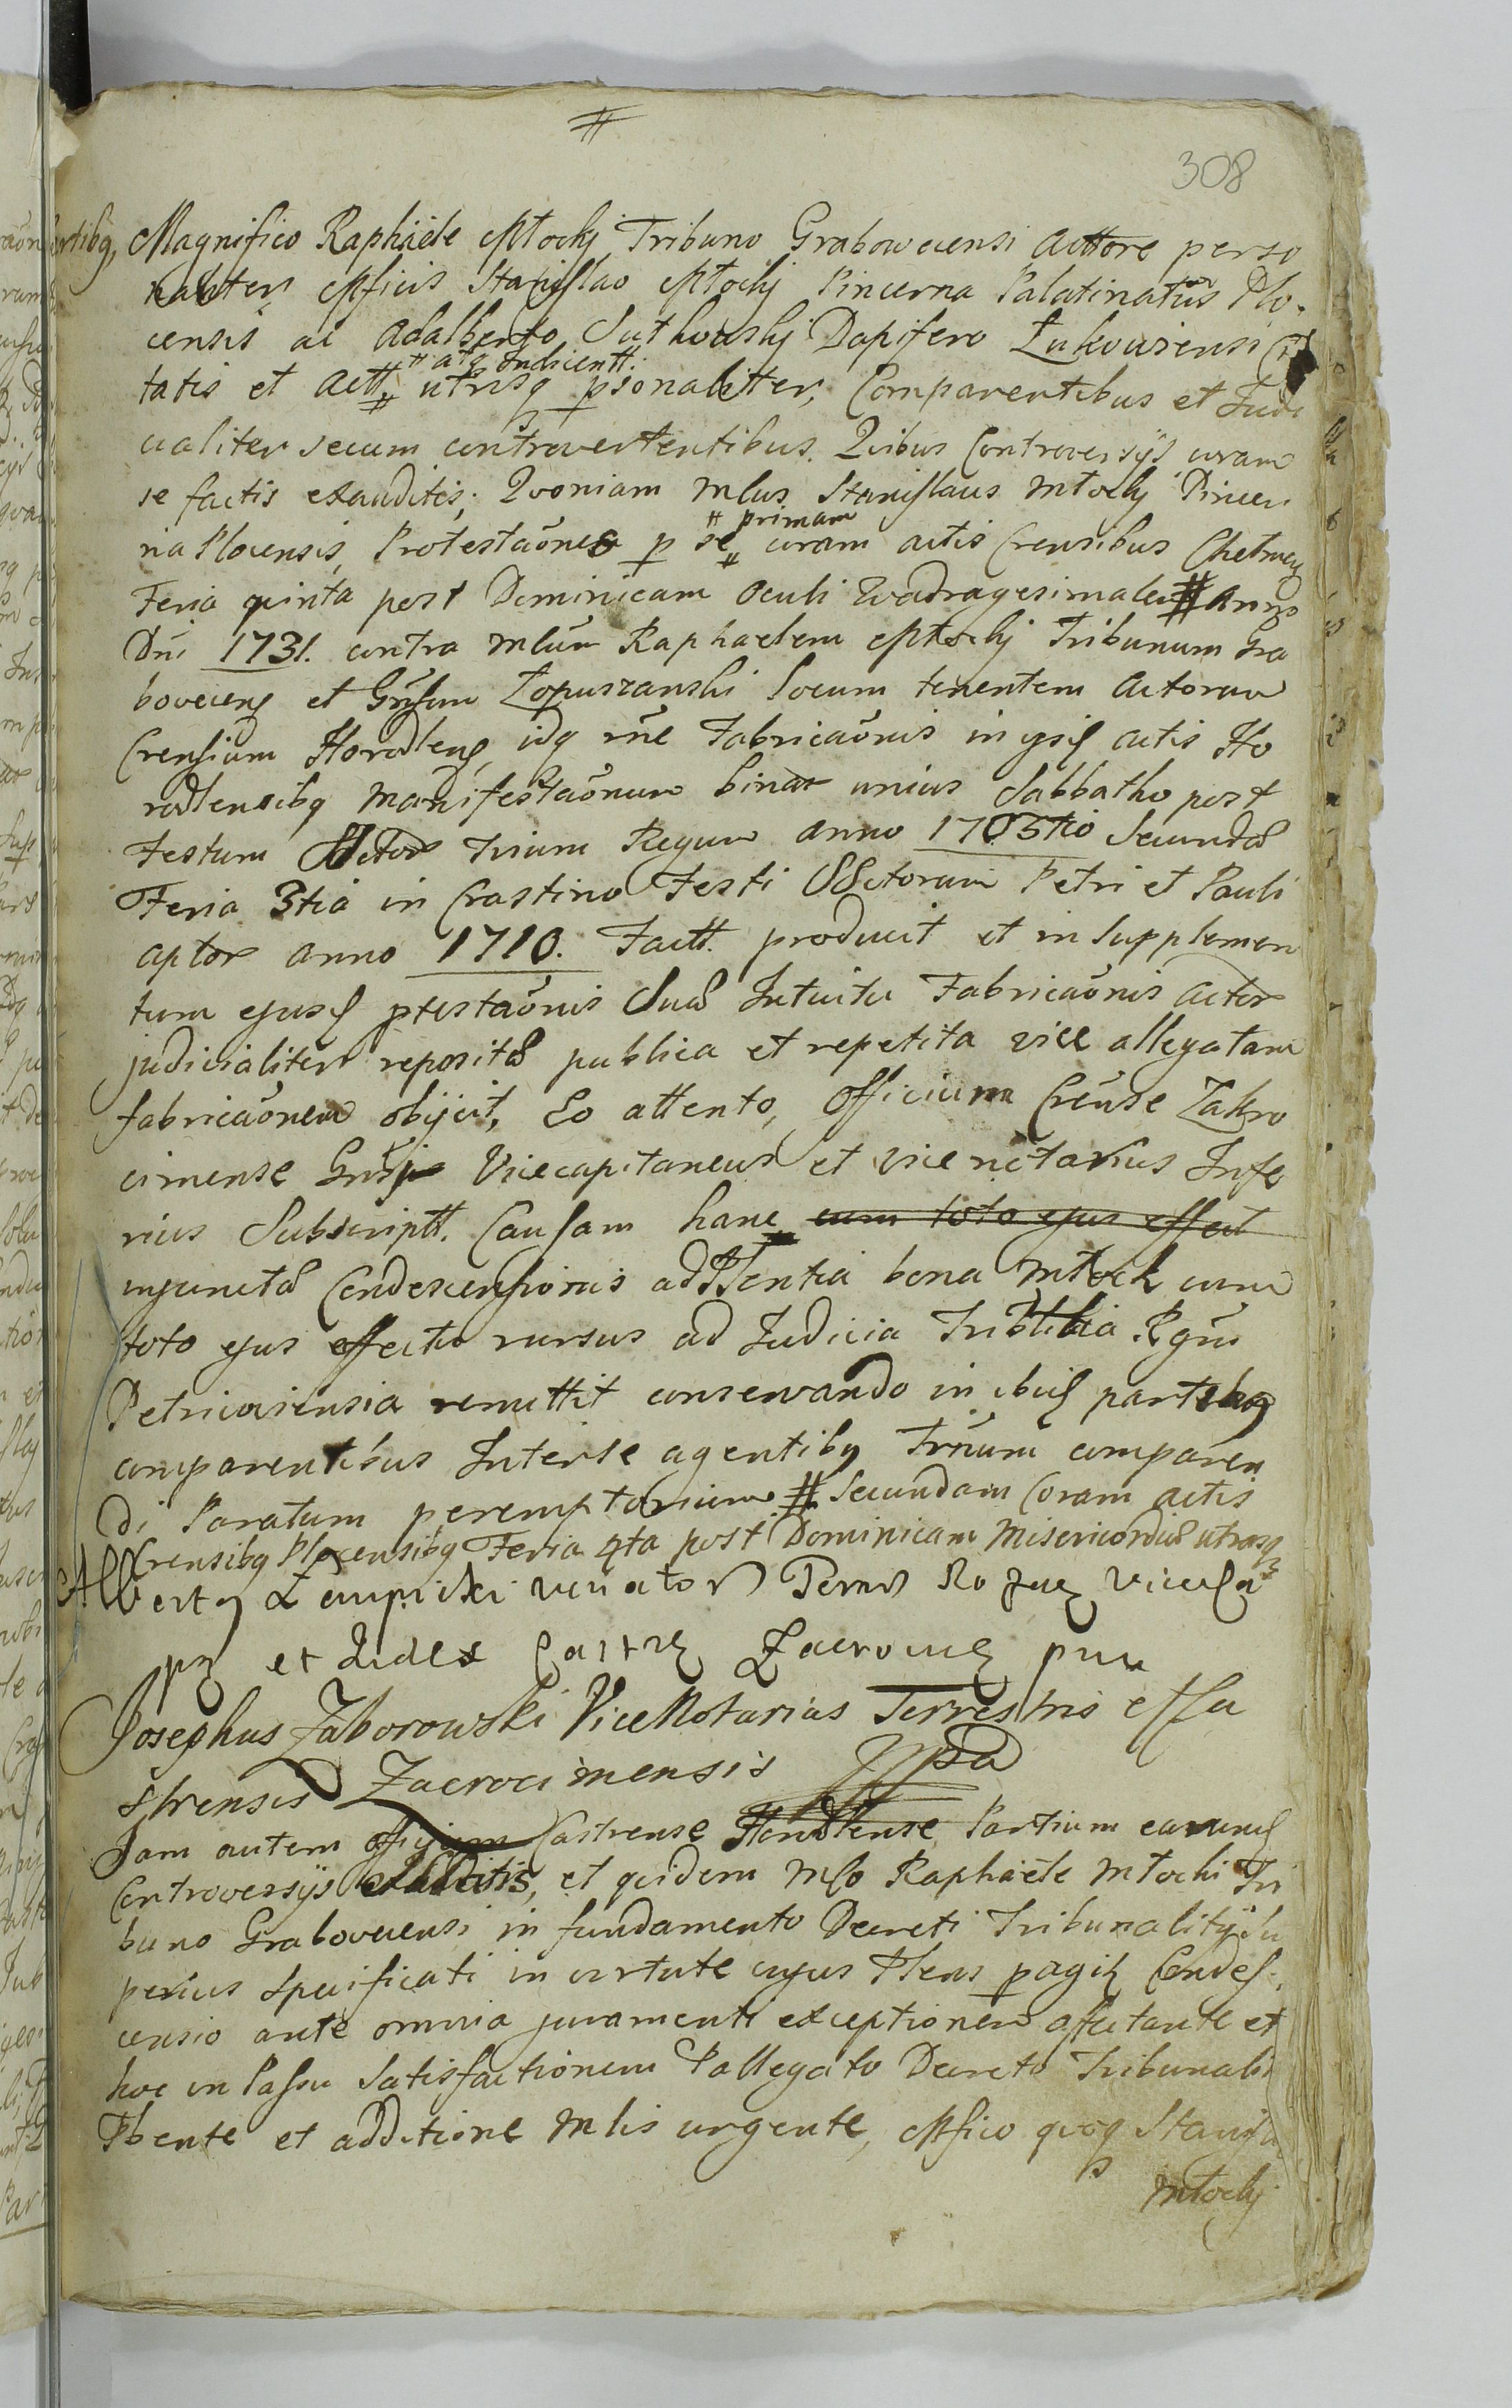 #
308
Magnifico Raphaele Młocky Tribuno Grabowecensi Acttore perso
naliter, Mficis Stanislao Młocky Pincerna Palatinatus Plo.
censis ac Adalberto Suthowsky Dapifero Łukoviensi Ci
# atq Indicentt.
tatis et Actt. # utrisq psonalitter, Comparentibus et Judi
cialiter secum controvertentibus. Quibus Controversijs coram
se factis exauditis; Quoniam Mlus Stanislaus Młocky Pincer
# primam
na Plocensis, Protestaönes p se # coram actis Crensibus Chelmen
Feria quinta post Dominicam Oculi Quadragesimalem # Anno
Dni 1731. contra Mlum Raphaelem Młocky Tribunum Gra
bovecens et Gnsum Łopuszanski Locum tenentem Actorum
Crensium Horodlens, idq rne Fabricaönis in ijsd actis Ho
rodlensibq Manifestaönum binar unius Sabbatho post
Festum SSctor Trium Regum anno 1703tio Secundæ
Feria 3tia in Crastino Festi SSctorum Petri et Pauli
aptor anno 1710. Factt. producit et in Supplemen
tum ejusd ptestaönis Suæ Intuitu Fabricaönis actor
judicialiter repositæ publica et repetita vice allegatam
fabricaönem obijcit, Eo attento, Officium Crense Zakro
cimense Gnsi Vicecapitaneus et vice notarius Infe
rius Subscriptt. Causam hanc cum toto ejus effect
injunctæ Condescensionis ad PSentia bona Młock cum
toto ejus effectu rursus ad Judicia Tribtlia Rgni
Petricoviensia remittit conservando in ibid partibq
comparentibus Interse agentibq Trnum comparen
di Paratum peremptorium # Secundam Coram actis
Crensibq Plocensibq Feria 4ta post Dominicam Misericordiæ utrasq
Albertq Łempicki Venator Terræ Rozae Vicesca
pz et Judex Castr Zacrocie
Josephus Zaborowski ViceNotarius Terrestris et Ca
strensis Zacrocimensis mpa
Jam autem officium Castrense Horodlense Partium earund
Controversijs exauditis, et quidem Mlo Raphaele Młocki Tri
buno Grabovecensi in fundamento Decreti Tribunalitij Su
perius Specificati in virtute cujus PSens pagit Condes,
censio ante omnia juramenti exceptionem affectante et
hoc in Passu Satisfactionem Pallegato Decreto Tribunali
Pbente et additione Mlis urgente, Mfico quoq Stanisla
Młocky